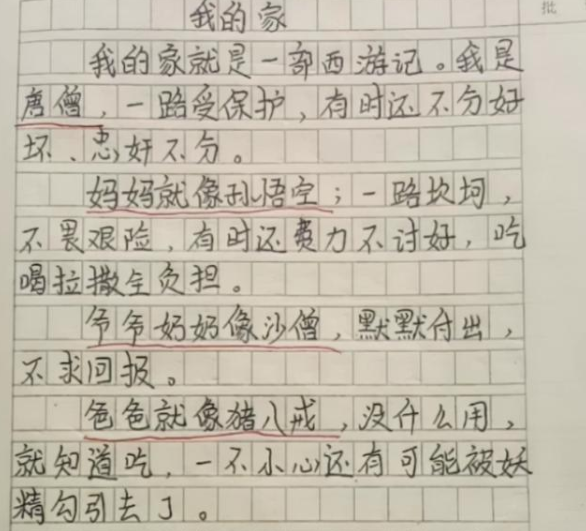 批
我的家
我的家就是一部西游记。我是
唐僧，一路受保护，有时还不分好
坏、忠奸不分。
妈妈就像孙悟空；一路坎坷，
不畏艰险，有时还费力不讨好，吃
喝拉撒全负担。
爷爷奶奶像沙僧，默默付出，
不求回报。
爸爸就像猪八戒，没什么用，
就知道吃，一不小心还有可能被妖
精勾引去了。